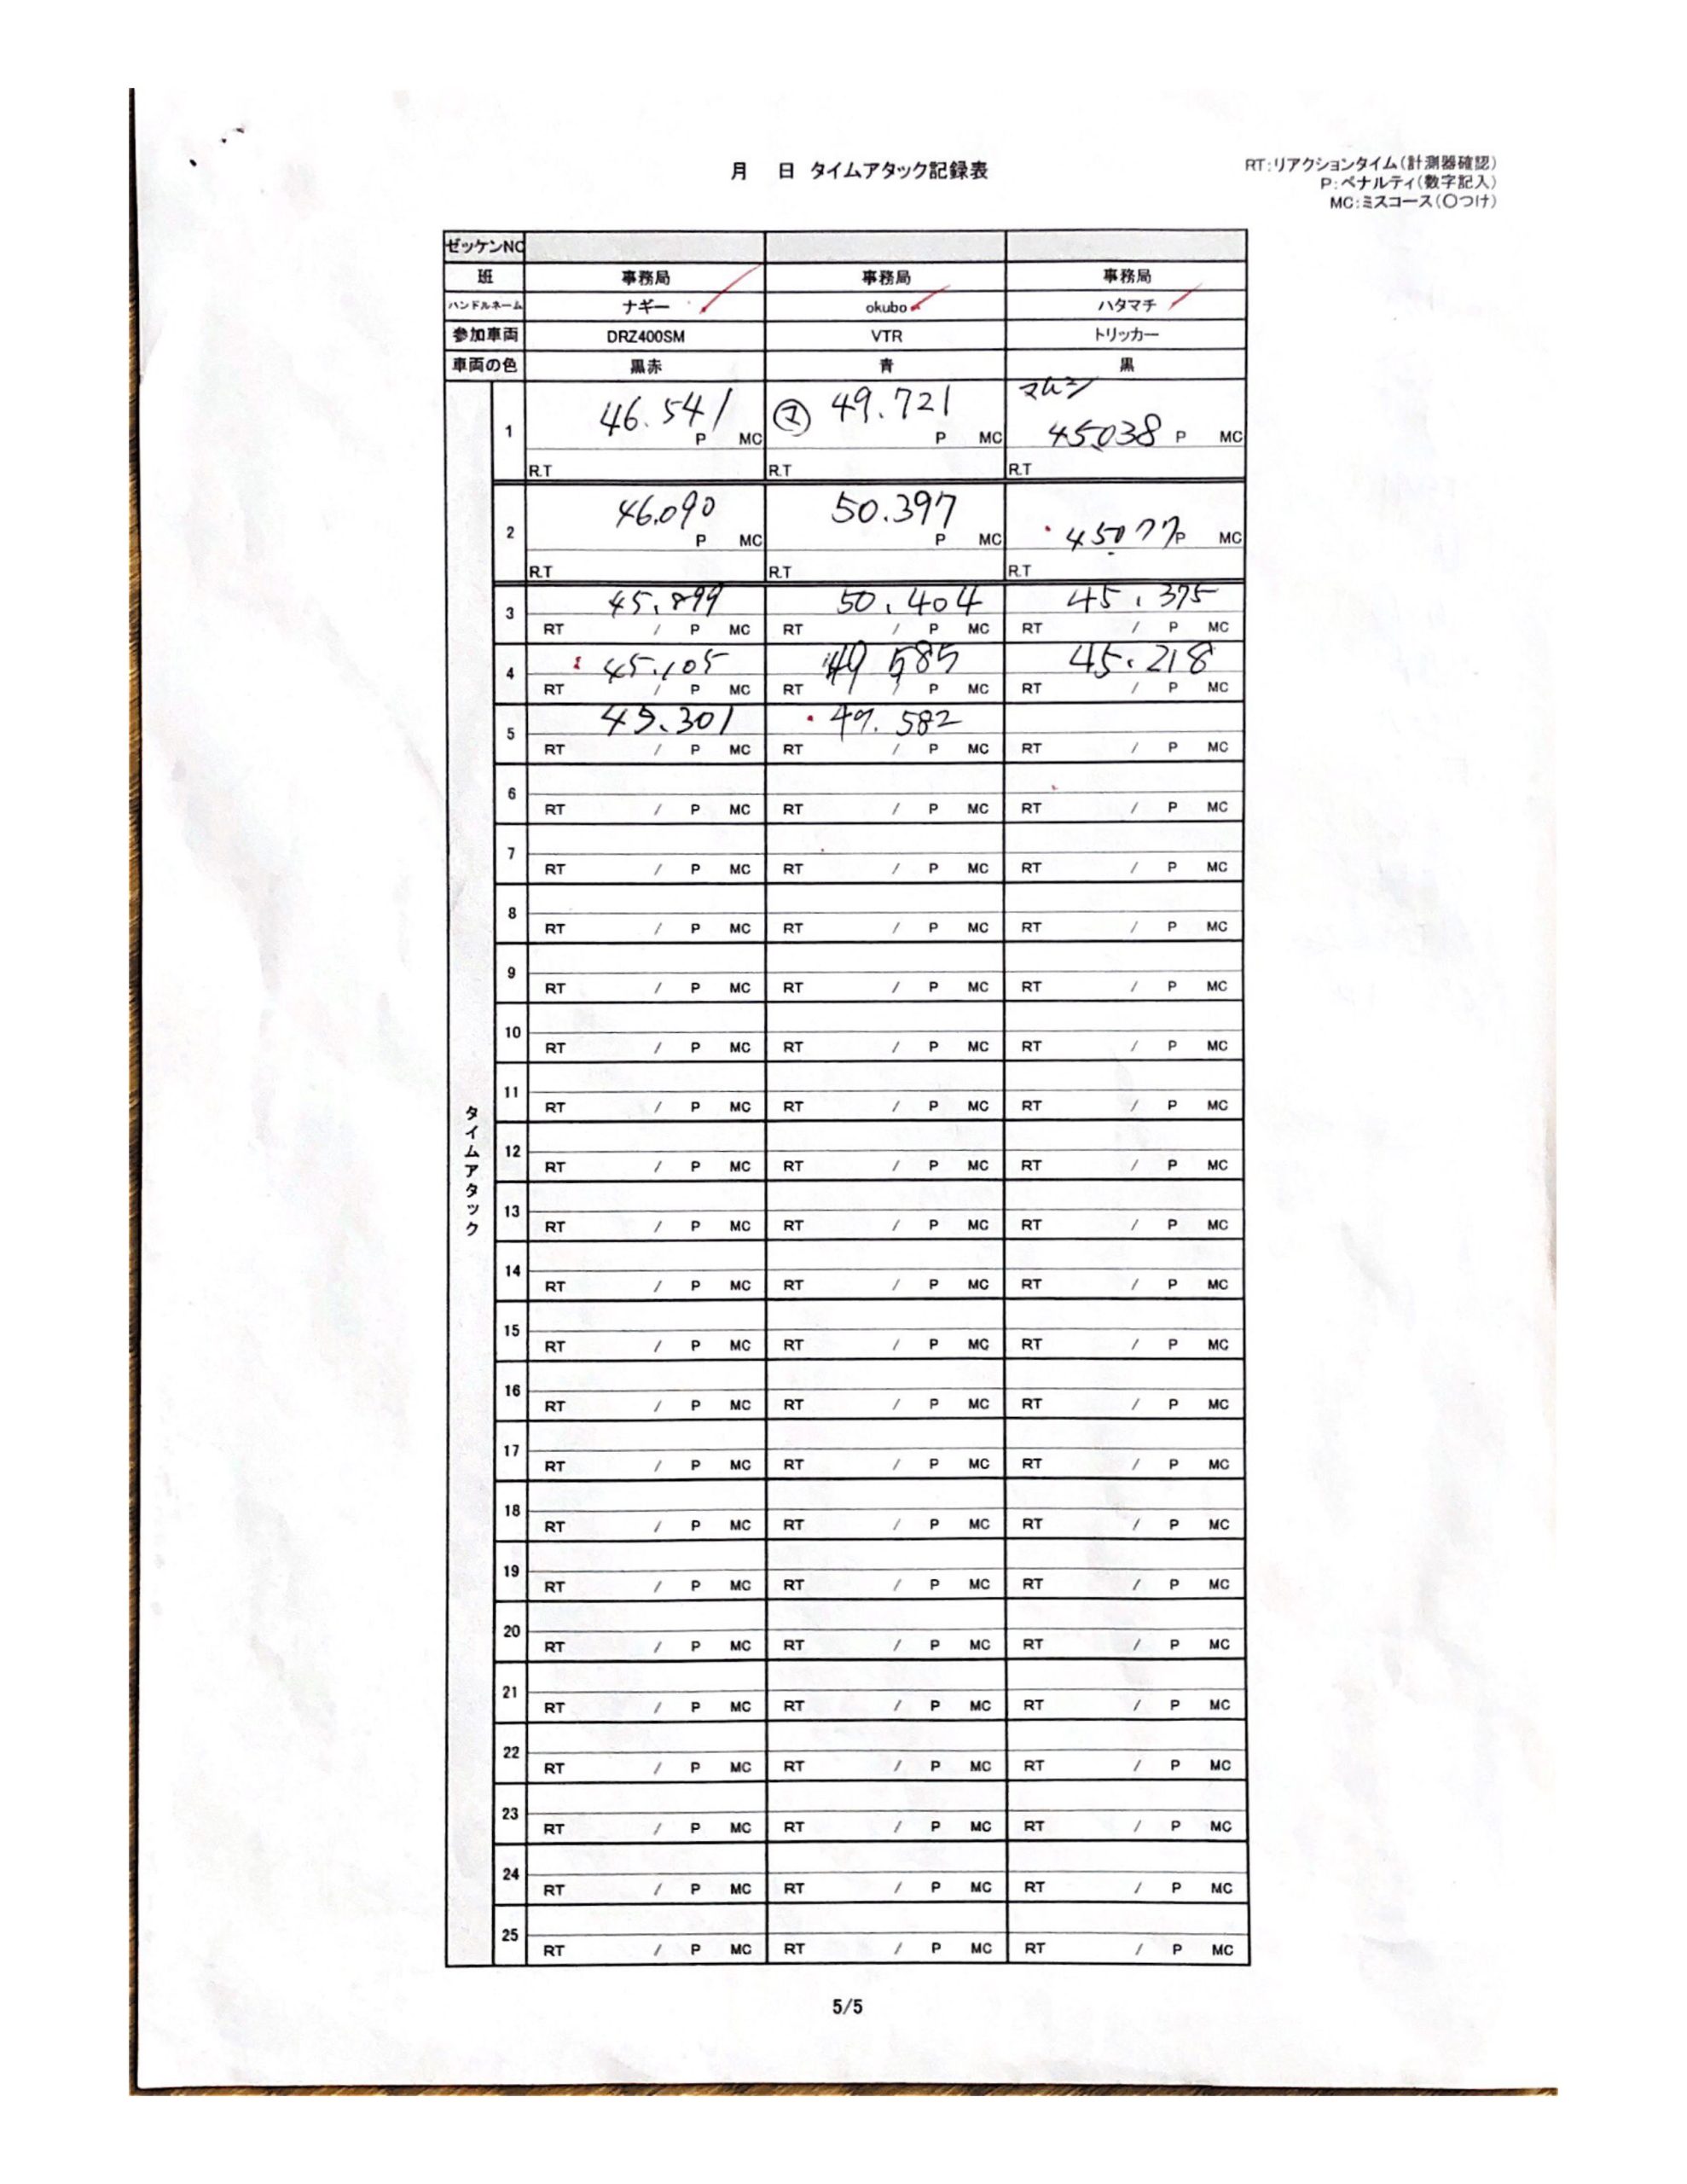 月 日 タイムアタック記録表
RT:リアクションタイム(計測器確認)
P:ペナルティ(数字記入)
MC:ミスコース(〇つけ)
ゼッケンNO
班 事務局 事務局 事務局
ハンドルネーム ナギー okubo ハタマチ
参加車両 DRZ400SM VTR トリッカー
車両の色 黒赤 青 黒
タイムアタック
マムシ
1 46.541 P MC ㋮ 49.721 P MC 45.038 P MC
R.T R.T R.T
2 46.090 P MC 50.397 P MC 45077 P MC
R.T R.T R.T
3 45.899 50.404 45.375
RT / P MC RT / P MC RT / P MC
4 45.105 49 585 45.218
RT / P MC RT / P MC RT / P MC
5 45.301 49.582
RT / P MC RT / P MC RT / P MC
6
RT / P MC RT / P MC RT / P MC
7
RT / P MC RT / P MC RT / P MC
8
RT / P MC RT / P MC RT / P MC
9
RT / P MC RT / P MC RT / P MC
10
RT / P MC RT / P MC RT / P MC
11
RT / P MC RT / P MC RT / P MC
12
RT / P MC RT / P MC RT / P MC
13
RT / P MC RT / P MC RT / P MC
14
RT / P MC RT / P MC RT / P MC
15
RT / P MC RT / P MC RT / P MC
16
RT / P MC RT / P MC RT / P MC
17
RT / P MC RT / P MC RT / P MC
18
RT / P MC RT / P MC RT / P MC
19
RT / P MC RT / P MC RT / P MC
20
RT / P MC RT / P MC RT / P MC
21
RT / P MC RT / P MC RT / P MC
22
RT / P MC RT / P MC RT / P MC
23
RT / P MC RT / P MC RT / P MC
24
RT / P MC RT / P MC RT / P MC
25
RT / P MC RT / P MC RT / P MC
5/5